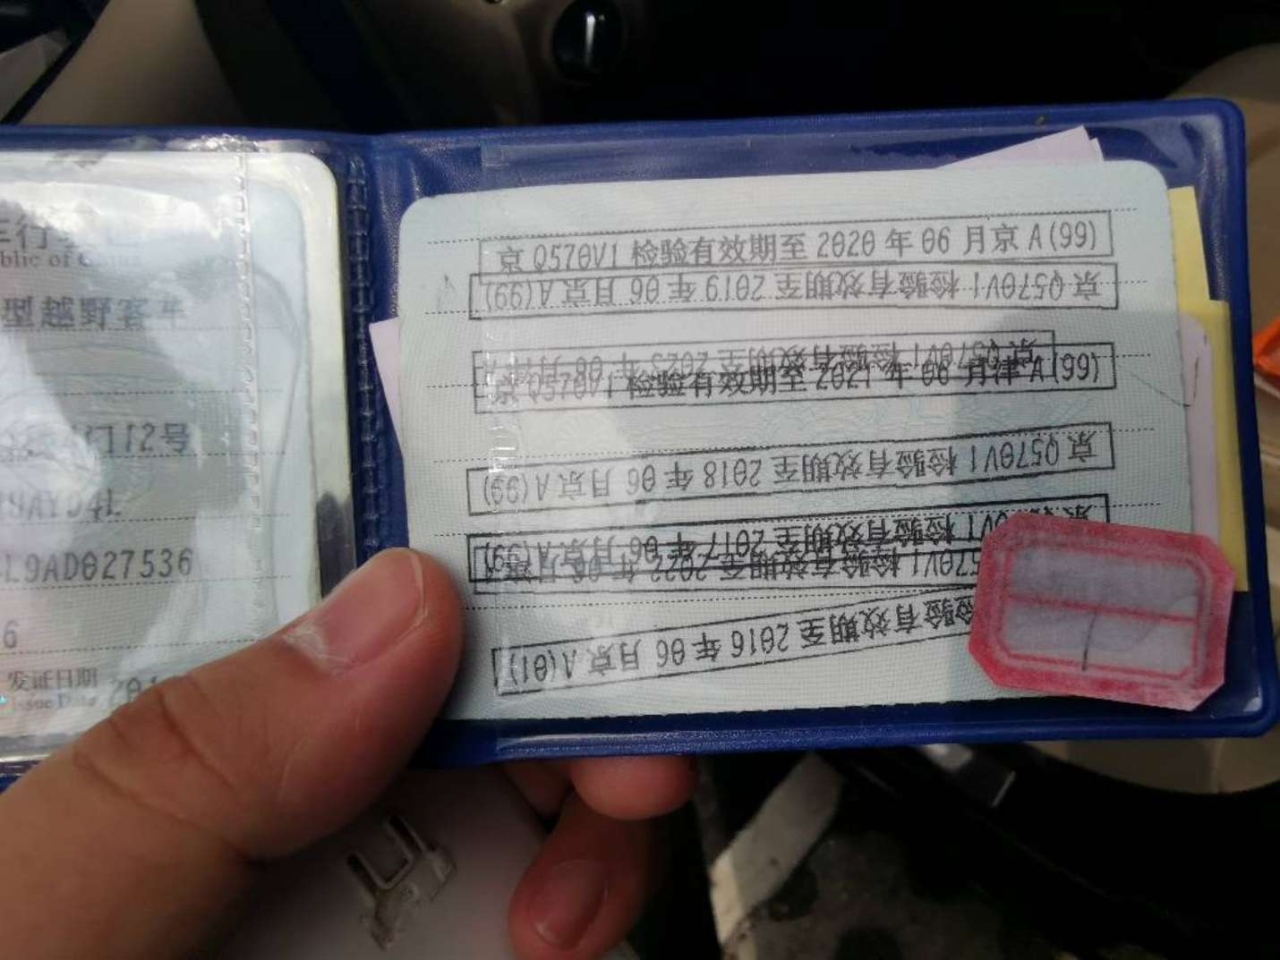 blic of China
型越野客车
12号
L9AD027536
6
发证日期
Issue Date 201
京Q570V1 检验有效期至 2020 年 06 月京 A(99)
京Q570V1 检验有效期至 2019 年 06 月京 A(99)
京Q570V1 检验有效期至 2023 年 06 月
京Q570V1 检验有效期至 2021 年 06 月津 A(99)
京Q570V1 检验有效期至 2018 年 06 月京 A(99)
V1 检验有效期至 2017 年 06 月京 A(99)
570V1 检验有效期至 2022 年 06 月
检验有效期至 2016 年 06 月京 A(01)